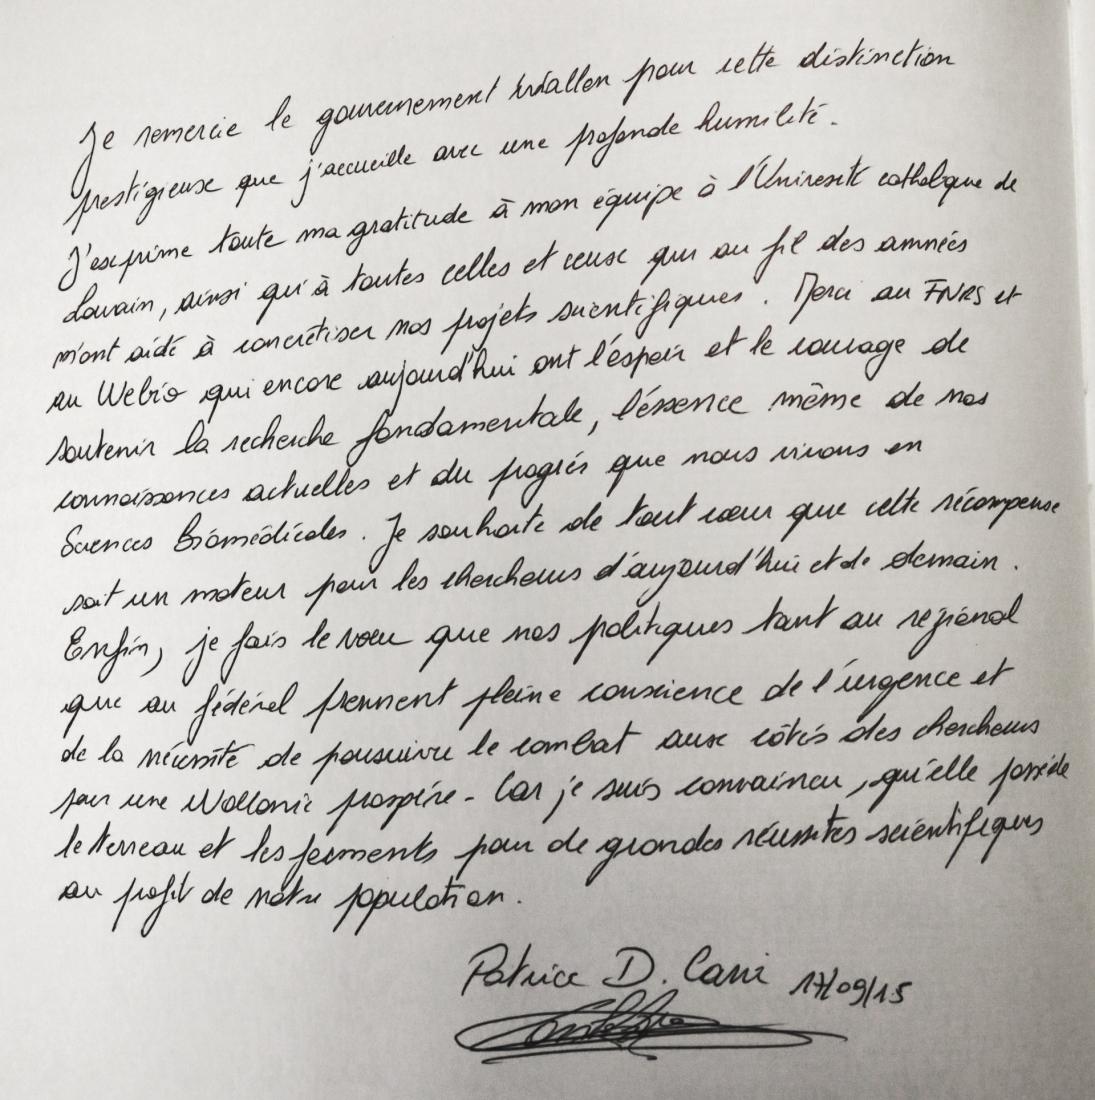 Je remercie le gouvernement wallon pour cette distinction
prestigieuse que j'accueille avec une profonde humilité.
J'exprime toute ma gratitude à mon équipe à l'Université catholique de
Louvain, ainsi qu'à toutes celles et ceux qui au fil des années
m'ont aidé à concrétiser nos projets scientifiques. Merci au FNRS et
au Welbio qui encore aujourd'hui ont l'espoir et le courage de
soutenir la recherche fondamentale, l'essence même de nos
connaissances actuelles et du progrès que nous vivons en
Sciences Biomédicales. Je souhaite de tout cœur que cette récompense
soit un moteur pour les chercheurs d'aujourd'hui et de demain.
Enfin, je fais le vœu que nos politiques tant au régional
que au fédéral prennent pleine conscience de l'urgence et
de la nécessité de poursuivre le combat aux côtés des chercheurs
pour une Wallonie prospère. Car je suis convaincu, qu'elle possède
le terreau et les ferments pour de grandes réussites scientifiques
au profit de notre population.
Patrice D. Cani 17/09/15